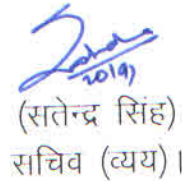 20/9/
(सतेन्द्र सिंह)
सचिव (व्यय)।